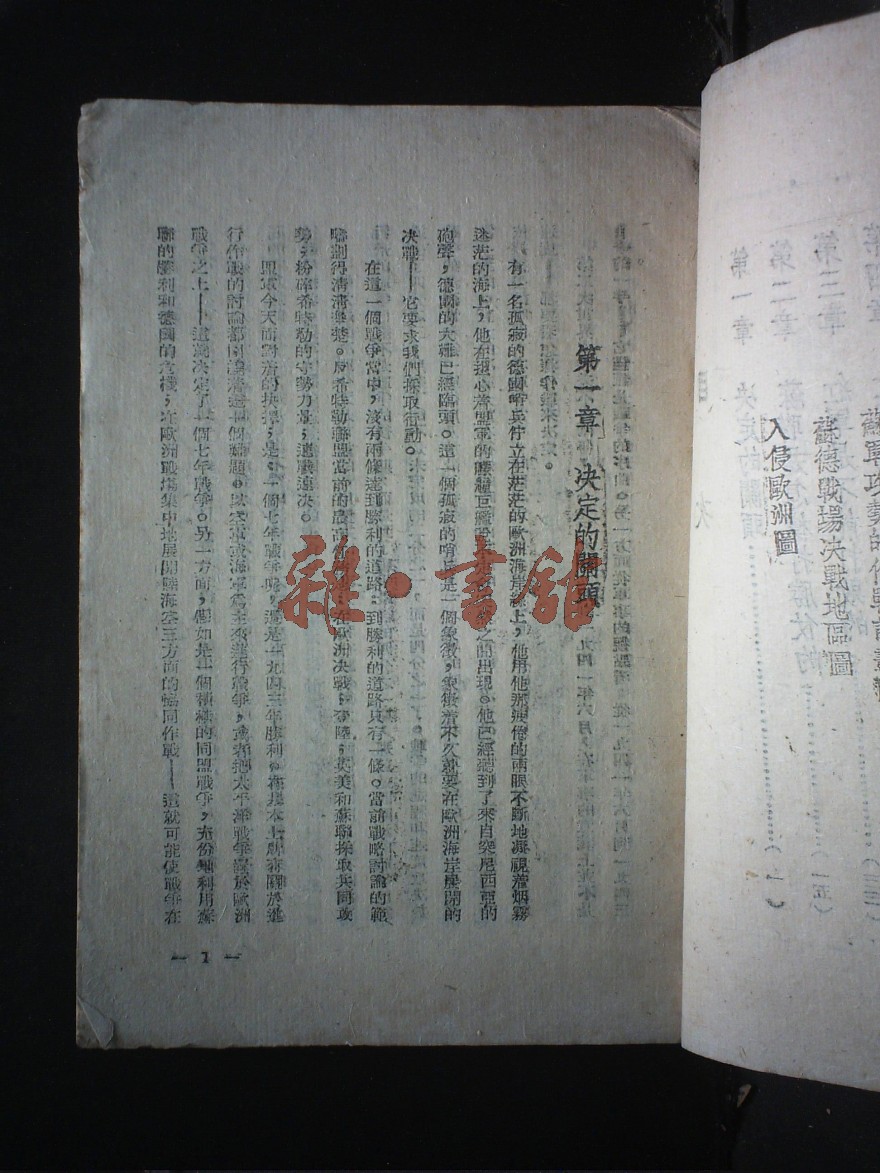 蘇德戰場決戰地區圖
入侵歐洲圖
第一章 決定的關頭
有一名孤寂的德國哨兵佇立在茫茫的歐洲海岸線上,他用他那疲倦的兩眼不斷地凝視着烟霧
迷茫的海上,他在担心着盟軍的艨艟巨艦 之間出現。他已經聽到了來自突尼西亞的
砲聲,德國的大難已經臨頭。這一個孤寂的哨兵是一個象徵,象徵着不久就要在歐洲海岸展開的
決戰——它要求我們採取行動。
在這一個戰爭當中,沒有兩條達到勝利的道路;到勝利的道路只有一條。當前戰略討論的範
疇劃得清清楚楚。反希特勒聯盟當前的 在歐洲決戰;登陸;英美和蘇聯採取共同攻
勢;粉碎希特勒的守勢力量;速戰速決。
盟軍今天面對着的抉擇,是:一個七年戰爭呢,還是一九四三年勝利。在基本上所有關於進
行作戰的討論都引導着這一個難題。以空軍或海軍爲主來進行戰爭,或者把太平洋戰爭置於歐洲
戰爭之上——這就決定了一個七年戰爭。另一方面,假如是一個積極的同盟戰爭,充份地利用蘇
聯的勝利和德國的危機,在歐洲戰場集中地展開陸海空三方面的協同作戰——這就可能使戰爭在
— 1 —
雜·書館